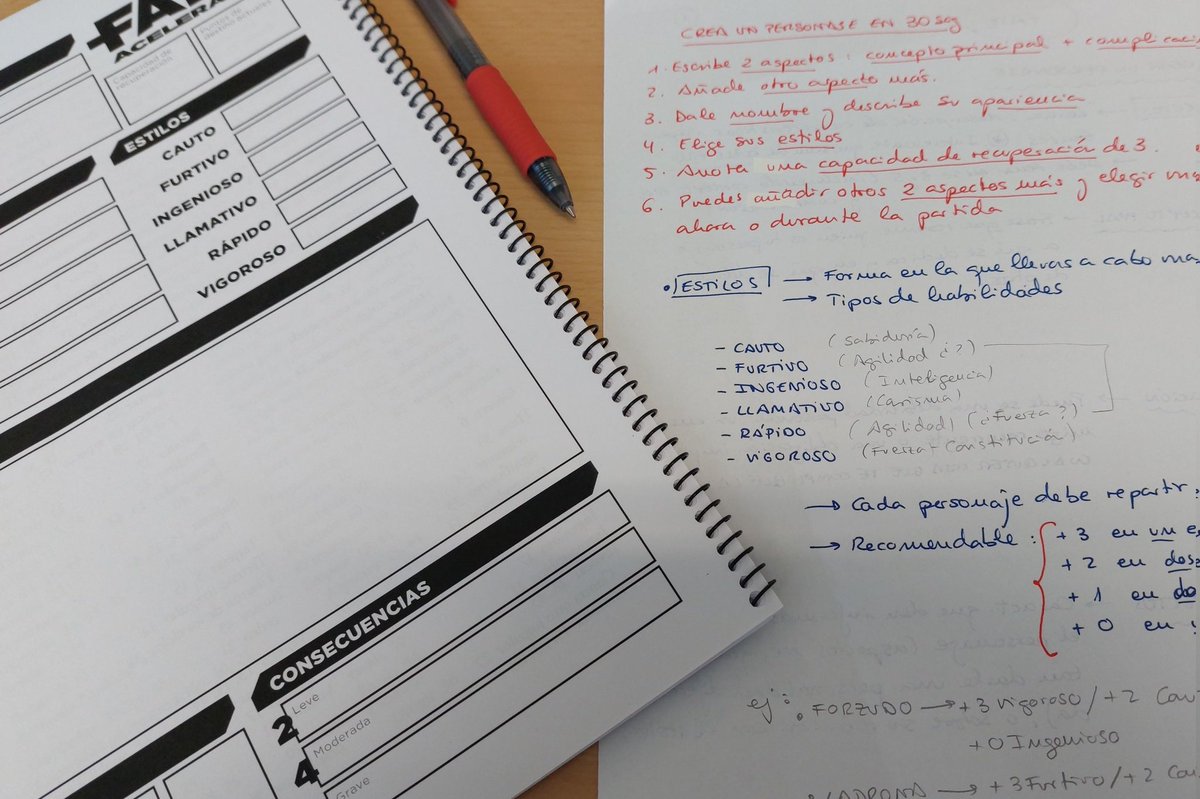 FA
ACELERA
Capacidad de
recuperación
Puntos de
destino actuales
ESTILOS
CAUTO
FURTIVO
INGENIOSO
LLAMATIVO
RÁPIDO
VIGOROSO
CONSECUENCIAS
2
Leve
4
Moderada
Grave
CREA UN PERSONAJE EN 30 sg
1. Escribe 2 aspectos: concepto principal + complicaci
2. Añade otro aspecto más.
3. Dale nombre y describe su apariencia
4. Elige sus estilos
5. Anota una capacidad de recuperación de 3.
6. Puedes añadir otros 2 aspectos más y elegir
ahora o durante la partida
• ESTILOS → Forma en la que llevas a cabo
→ Tipos de habilidades
- CAUTO (Sabiduría)
- FURTIVO (Agilidad ¿?)
- INGENIOSO (Inteligencia)
- LLAMATIVO (Carisma)
- RÁPIDO (Agilidad) (¿Fuerza?)
- VIGOROSO (Fuerza + Constitución)
→ Cada personaje debe repartir:
→ Recomendable: + 3 en un e
+ 2 en dos
+ 1 en do
+ 0 en
ej: • FORZUDO → +3 Vigoroso / +2 Cau
+0 Ingenioso
LADRONA → +3 Furtivo / +2 Cau